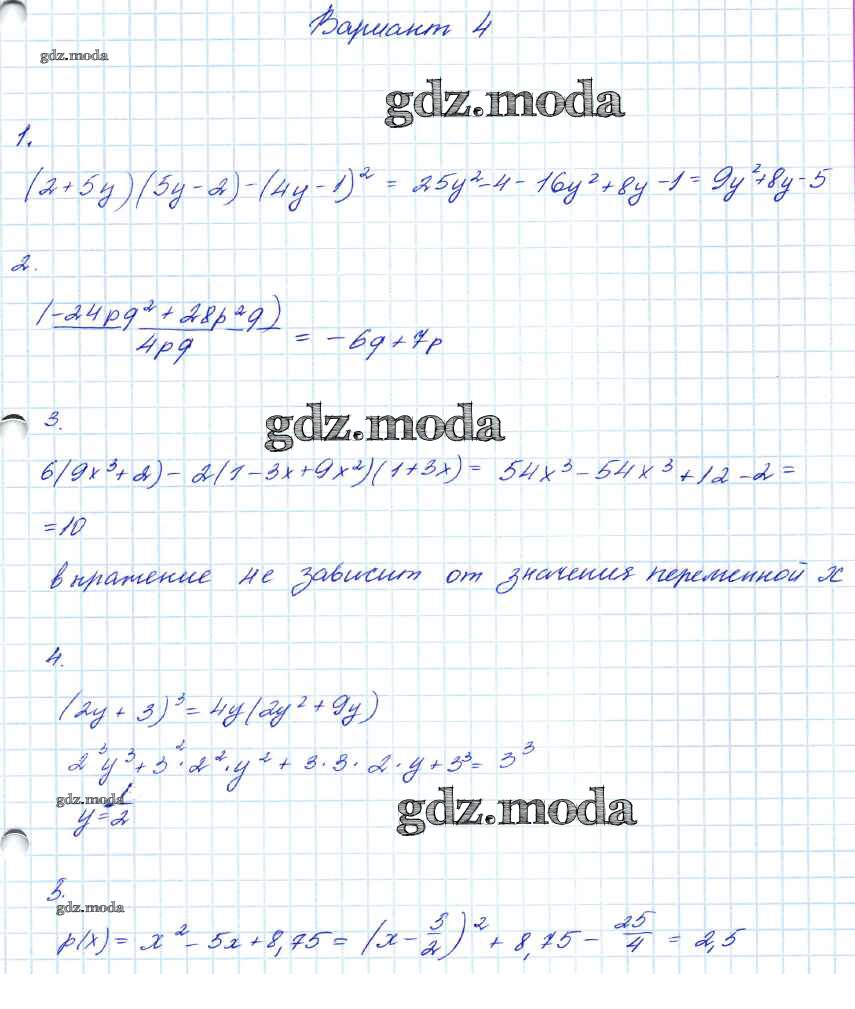 Вариант 4
gdz.moda
gdz.moda
1.
(2+5y)(5y-2)-(4y-1)² = 25y²-4-16y²+8y-1= 9y²+8y-5
2.
(-24pq²+28p²q)
4pq
= -6q+7p
3.
gdz.moda
6(9x³+2)-2(1-3x+9x²)(1+3x)= 54x³-54x³+12-2=
=10
выражение не зависит от значения переменной x
4.
(2y+3)³=4y(2y²+9y)
2³y³+3²·2²·y²+3·3²·2·y+3³= 3³
gdz.moda
y=-1/2
gdz.moda
5.
gdz.moda
p(x)= x²-5x+8,75=(x-5/2)²+8,75-25/4 = 2,5